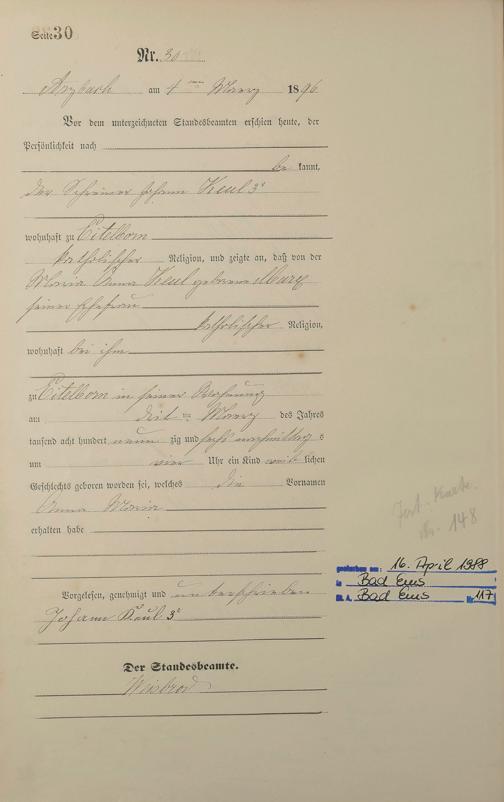 Seite 30
Nr. 30
Arzbach am 4ten März 1896
Vor dem unterzeichneten Standesbeamten erschien heute, der
Persönlichkeit nach
be kannt,
der Schreiner Johann Keul 3r
wohnhaft zu Eitelborn
katholischer Religion, und zeigte an, daß von der
Maria Anna Keul geborene Marx
seiner Ehefrau
katholischer Religion,
wohnhaft bei ihm
zu Eitelborn in seiner Wohnung
am März des Jahres
tausend acht hundert neun zig und sechs nachmittag s
um vier Uhr ein Kind weib lichen
Geschlechts geboren worden sei, welches die Vornamen
Anna Maria
erhalten habe
Vorgelesen, genehmigt und unterschrieben
Johann Keul 3r
Der Standesbeamte.
Weisbrod
Nr. 148
gestorben am: 16. April 1988
in Bad Ems
St. A. Bad Ems Nr. 117